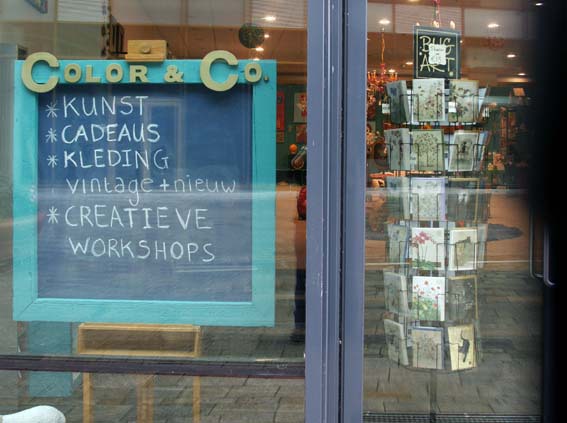 COLOR & CO.
* KUNST
* CADEAUS
* KLEDING
vintage + nieuw
* CREATIEVE
WORKSHOPS
BUG
ART